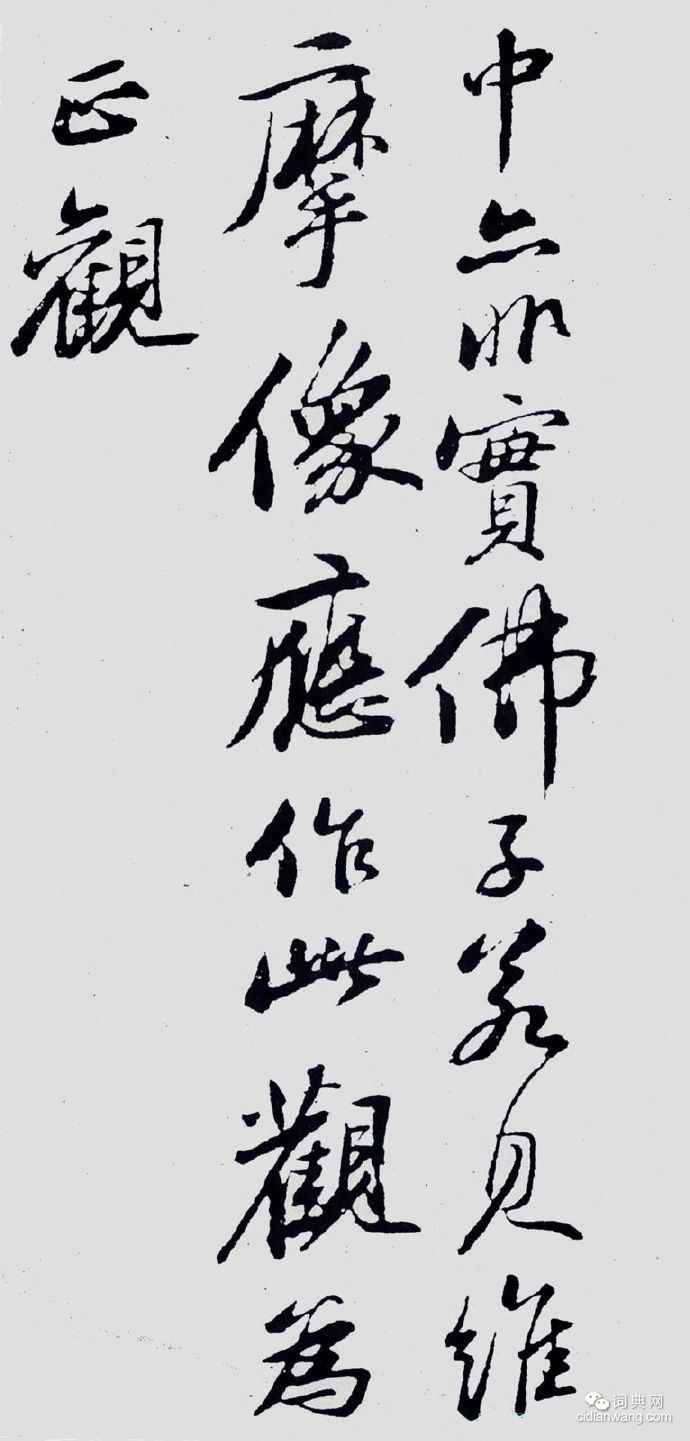 中亦非實佛子若見維
摩像應作此觀為
正觀
词典网
cidianwang.com